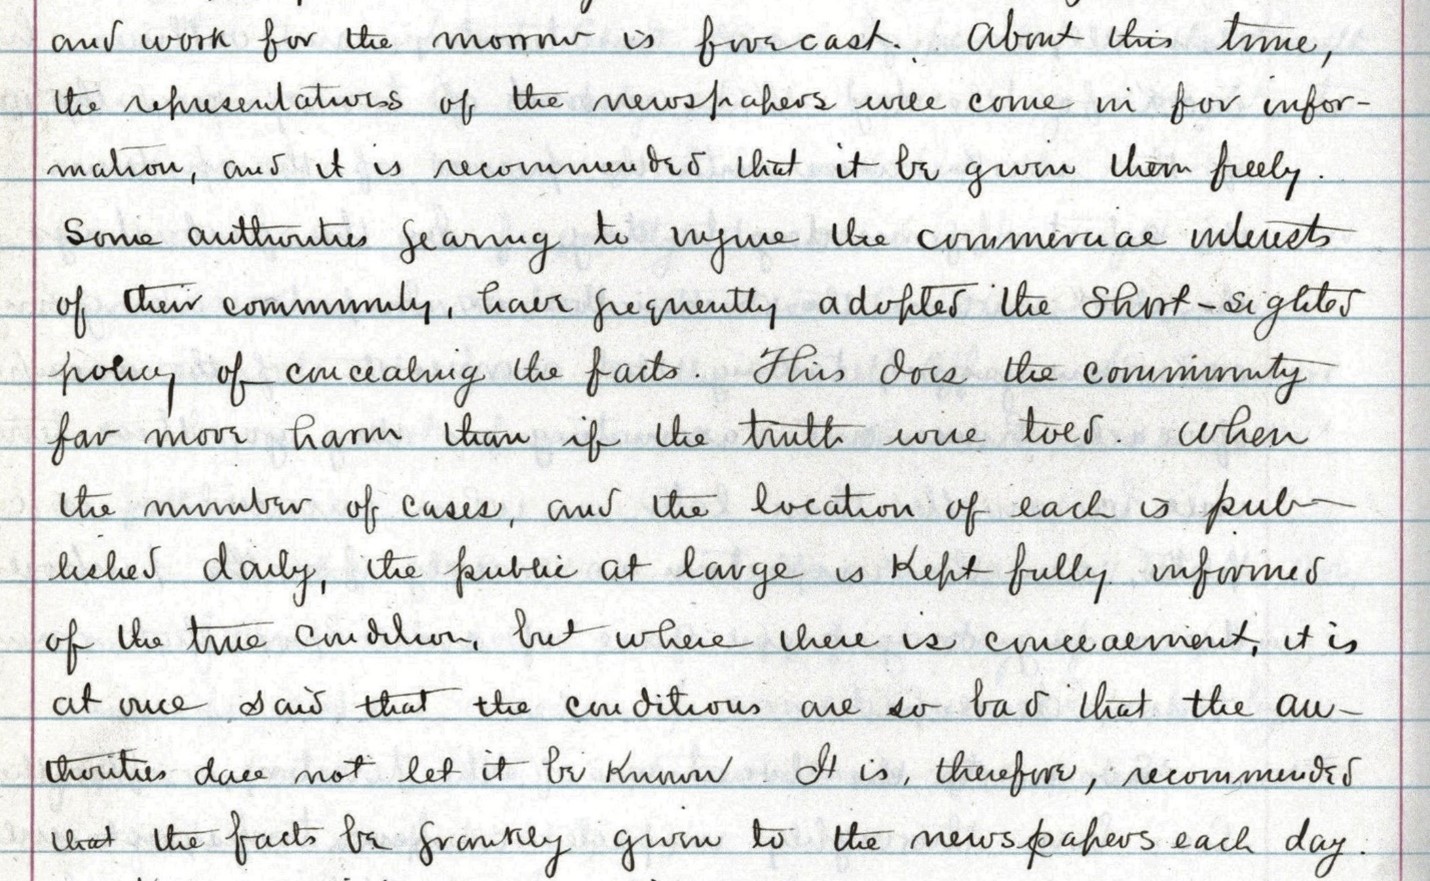 and work for the morrow is forecast. About this time,
the representatives of the newspapers will come in for infor-
mation, and it is recommended that it be given them freely.
Some authorities fearing to injure the commercial interests
of their community, have frequently adopted the short-sighted
policy of concealing the facts. This does the community
far more harm than if the truth were told. When
the number of cases, and the location of each is pub-
lished daily, the public at large is kept fully informed
of the true condition, but where there is concealment, it is
at once said that the conditions are so bad that the au-
thorities dare not let it be known. It is, therefore, recommended
that the facts be frankly given to the newspapers each day.